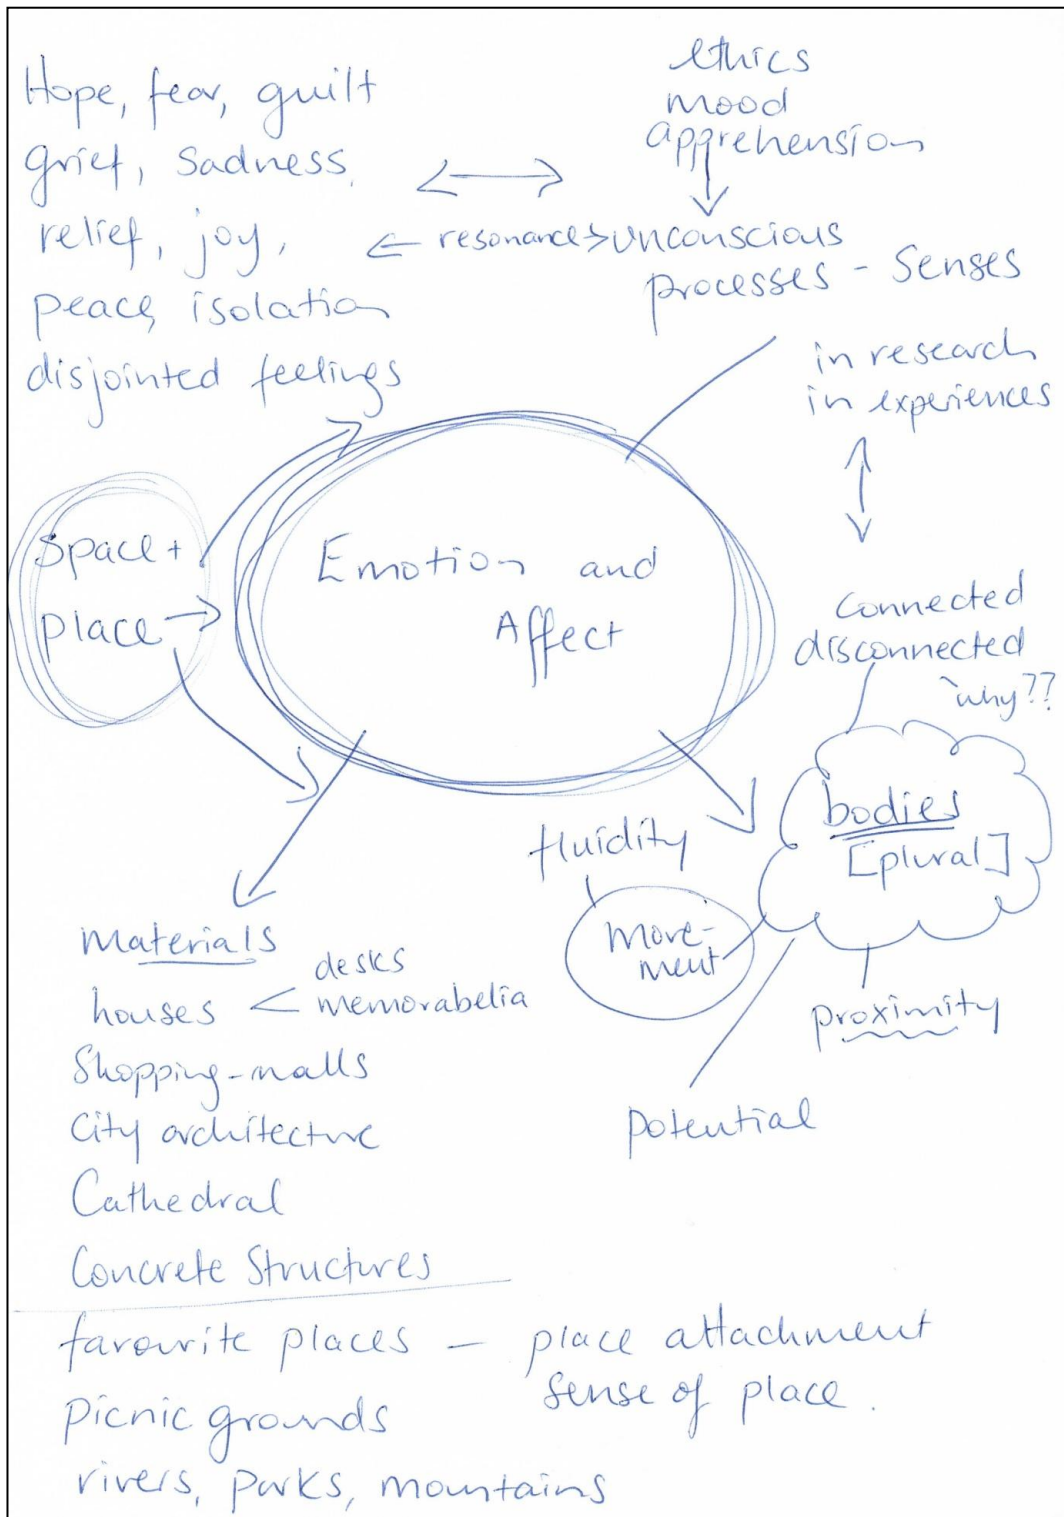 Hope, fear, guilt
grief, sadness,
relief, joy,
peace, isolation
disjointed feelings
ethics
mood
apprehension
resonance
unconscious
processes - senses
in research
in experiences
Space +
place
Emotion and
Affect
connected
disconnected
why??
bodies
[plural]
fluidity
move-
ment
proximity
potential
materials
houses < desks
memorabelia
Shopping-malls
City architecture
Cathedral
Concrete Structures
favourite places - place attachment
sense of place.
picnic grounds
rivers, parks, mountains